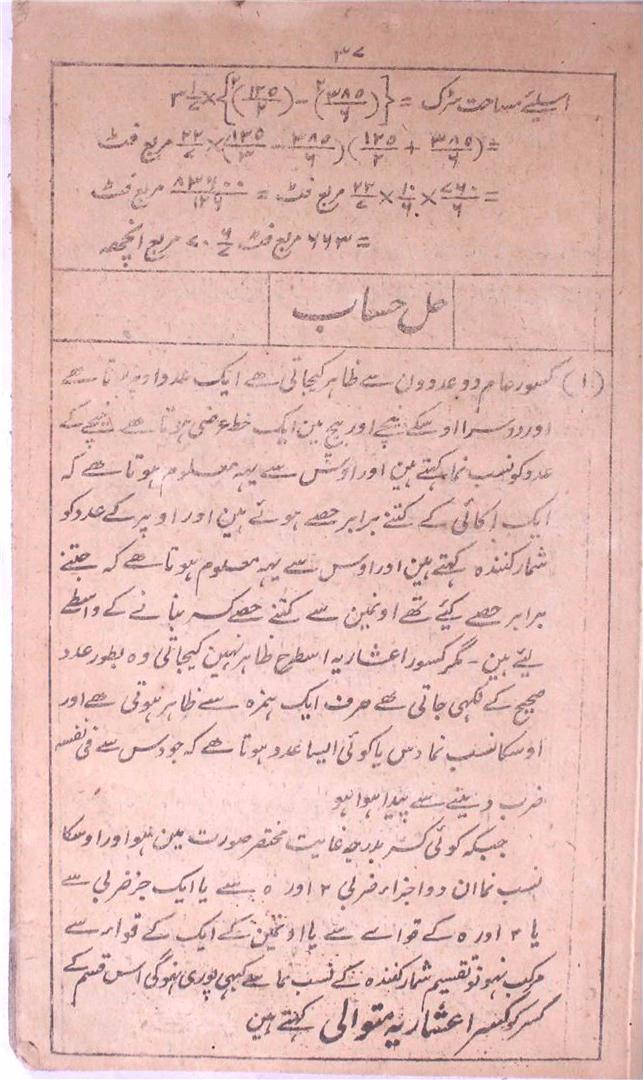 ۳۷
اسلئے مساحت سڑک = {(۳۸۵/۶)۲ − (۱۲۵/۲)۲} × ۳ ۱/۷
= (۳۸۵/۶ + ۱۲۵/۲)(۳۸۵/۶ − ۱۲۵/۲) × ۲۲/۷ مربع فٹ
= ۷۶۰/۶ × ۱۰/۶ × ۲۲/۷ مربع فٹ = مربع فٹ
= ۶۶۳ مربع فٹ ۲۰ ۴/۷ مربع انچھہ
حل حساب
(۱) کسور عام دو عددون سے ظاہر کیجاتی ھے ایک عدد اوپر ہوتا ھے
اور دوسرا اوسکے نیچے اور بیچ مین ایک خط عرضی ہوتا ھے نیچے کے
عدد کو نسب نما کہتے ہین اور اوس سے یہہ معلوم ہوتا ھے کہ
ایک اکائی کے کتنے برابر حصے ہوئے ہین اور اوپر کے عدد کو
شمار کنندہ کہتے ہین اور اوس سے یہہ معلوم ہوتا ھے کہ جتنے
برابر حصے کیئے تھے اونمین سے کتنے حصے کسر بنانے کے واسطے
لیئے ہین - مگر کسور اعشاریہ اسطرح ظاہر نہین کیجاتی وہ بطور عدد
صحیح کے لکہی جاتی ھے صرف ایک ہمزہ سے ظاہر ہوتی ھے اور
اوسکا نسب نما دس یا کوئی ایسا عدد ہوتا ھے کہ جو دس سے فی نفسہ
ضرب دینے سے پیدا ہوا ہو
جبکہ کوئی کسر بدرجہ غایت مختصر صورت مین ہو اور اوسکا
نسب نما ان دو اجزاء ضربی ۲ اور ۵ سے یا ایک جز ضربی سے
یا ۲ اور ۵ کے قواے سے یا اونمین کے ایک کے قواء سے
مرکب نہو تو تقسیم شمار کنندہ کے نسب نما سے کبہی پوری نہوگی اس قسم کے
کسر کو کسر اعشاریہ متوالی کہتے ہین